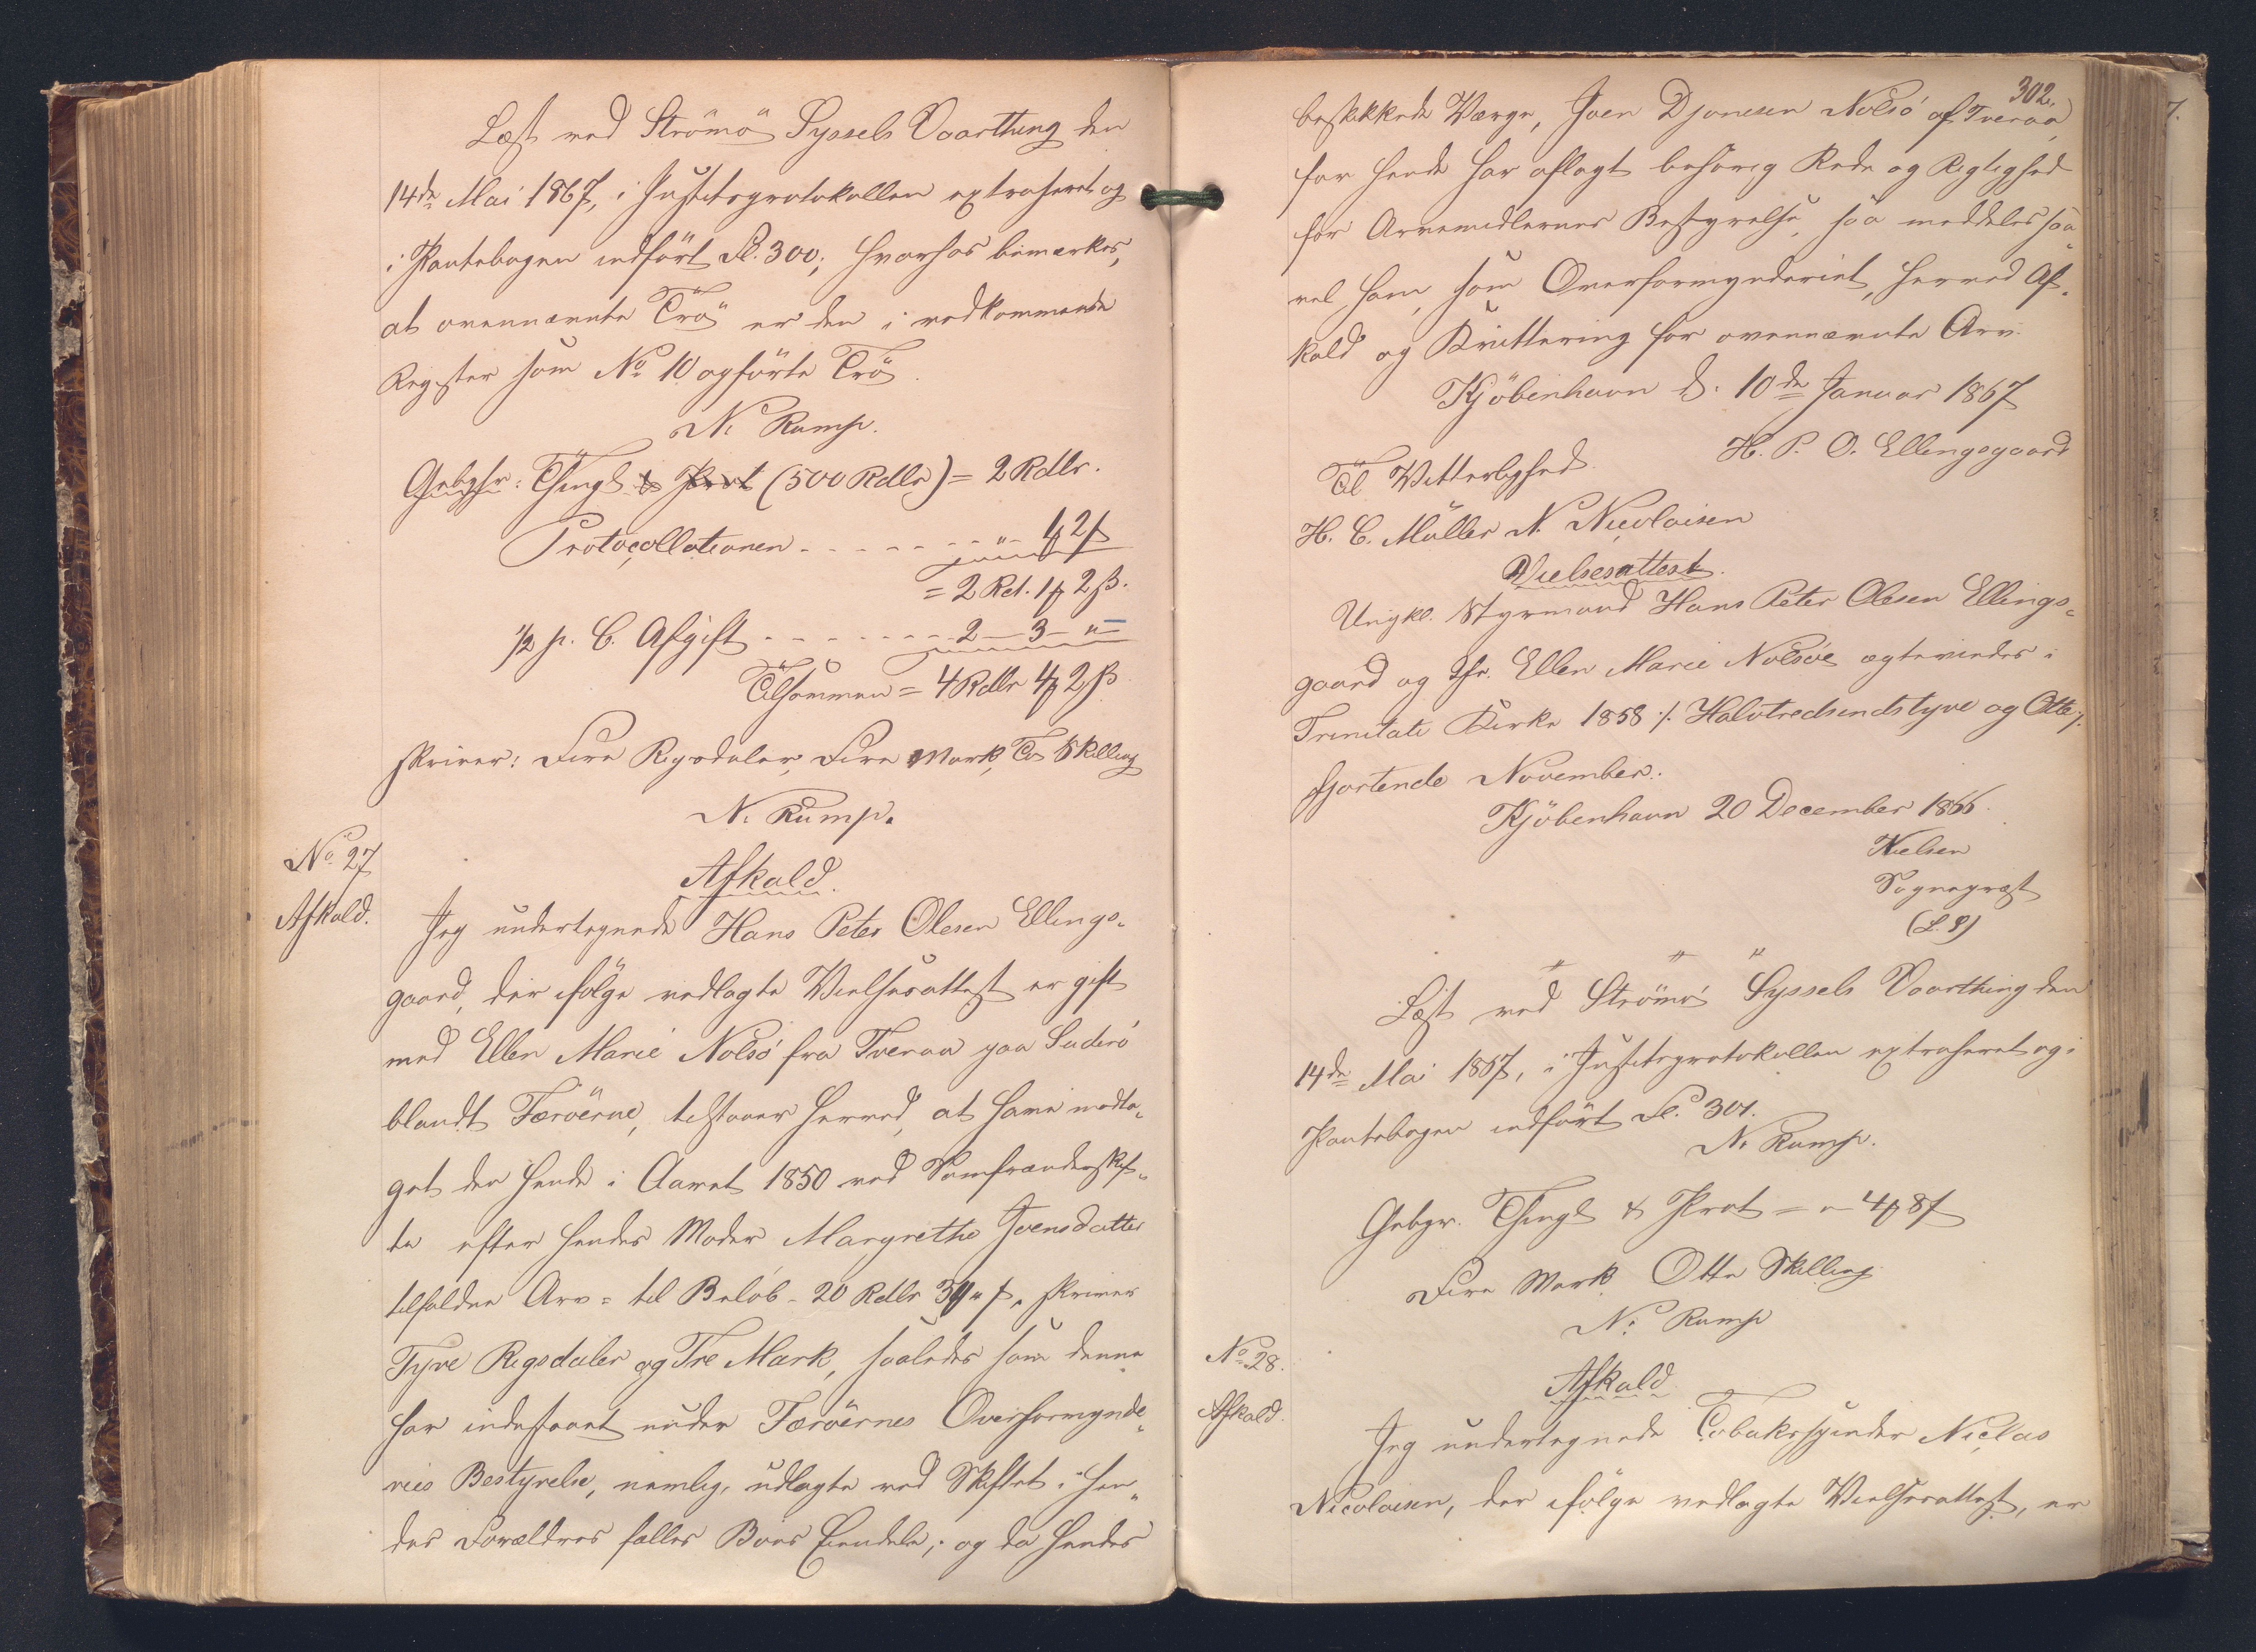 Læst ved Strömö Syssels Vaarthing den
14de Mai 1867, i Justitsprotokollen extraheret og
i Pantebogen indført Fl. 300; hvorhos bemærkes,
at ovennævnte Trö er den i vedkommende
Register som No 10 opførte Trö.
N. Rump.
Gebyhr: Thingl & Prot (500 Rdlr) = 2 Rdlr.
Protocollationen - - - - - - - " - 1 ₻ 2 ß
= 2 Rd. 1 ₻ 2 ß.
1/2 p. C. Afgift - - - - - - - 2 - 3 - " -
Tilsammen = 4 Rdlr 4 ₻ 2 ß
skriver: Fire Rigsdaler, Fire Mark, To Skilling
N. Rump.
No 27
Afkald.
Afkald.
Jeg undertegnede Hans Peter Olesen Ellings-
gaard, der ifølge vedlagte Vielsesattest er gift
med Ellen Marie Nolsö fra Tveraa paa Suderö
blandt Færöerne, tilstaaer herved, at have modta-
get den hende i Aaret 1850 ved Samfrændeskif-
te efter hendes Moder Margrethe Joensdatter
tilfaldne Arv = til Beløb - 20 Rdlr 3 ₻ " ß, skriver
Tyve Rigsdaler og Tre Mark, saaledes som denne
har indestaaet under Færöernes Overformynde-
ries Bestyrelse, nemlig, udlagte ved Skiftet i hen-
des Forældres fælles Boes Eiendele; og da hendes
302.
beskikkede Værge, Joen Djonesen Nolsö af Tveraa,
for hende har aflagt behørig Rede og Rigtighed
for Arvemidlernes Bestyrelse, saa meddeles saa-
vel ham, som Overformynderiet, herved Af-
kald og Kvittering for ovennævnte Arv.
Kjöbenhavn d. 10de Januar 1867
H. P. O. Ellingsgaard
Til Vitterlighed.
H. C. Müller N. Nicolaisen
Vielsesattest.
Ungkl. Styrmand Hans Peter Olesen Ellings-
gaard og Jfr. Ellen Marie Nolsöe ægteviedes i
Trinitatis Kirke 1858 ./. Halvtredsindstyve og Otte ./.
fjortende November.
Kjöbenhavn 20 December 1866.
Nielsen
Sognepræst
(L. S)
" " "
Læst ved Strömö Syssels Vaarthing den
14de Mai 1867, i Justitsprotokollen extraheret og i
Pantebogen indført Fl. 301.
N. Rump.
Gebyr. Thingl & Prot = " 4 ₻ 8 ß
Fire Mark Otte Skilling
N. Rump
No 28.
Afkald.
Afkald
Jeg undertegnede Tobaksspinder Niclas
Nicolaisen, der ifølge vedlagte Vielsesattest, er